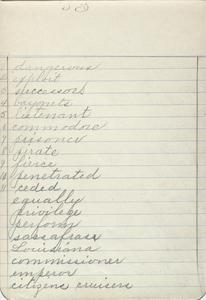 dangerous
2 exploit
3 successors
4 bayonets
5 lietenant
6 commodore
7 prisoner
8 pirate
9 fierce
10 penetrated
11 ceded
equally
privilege
perform
sassafrass
Louisiana
commissioner
emperor
citizens cruisers